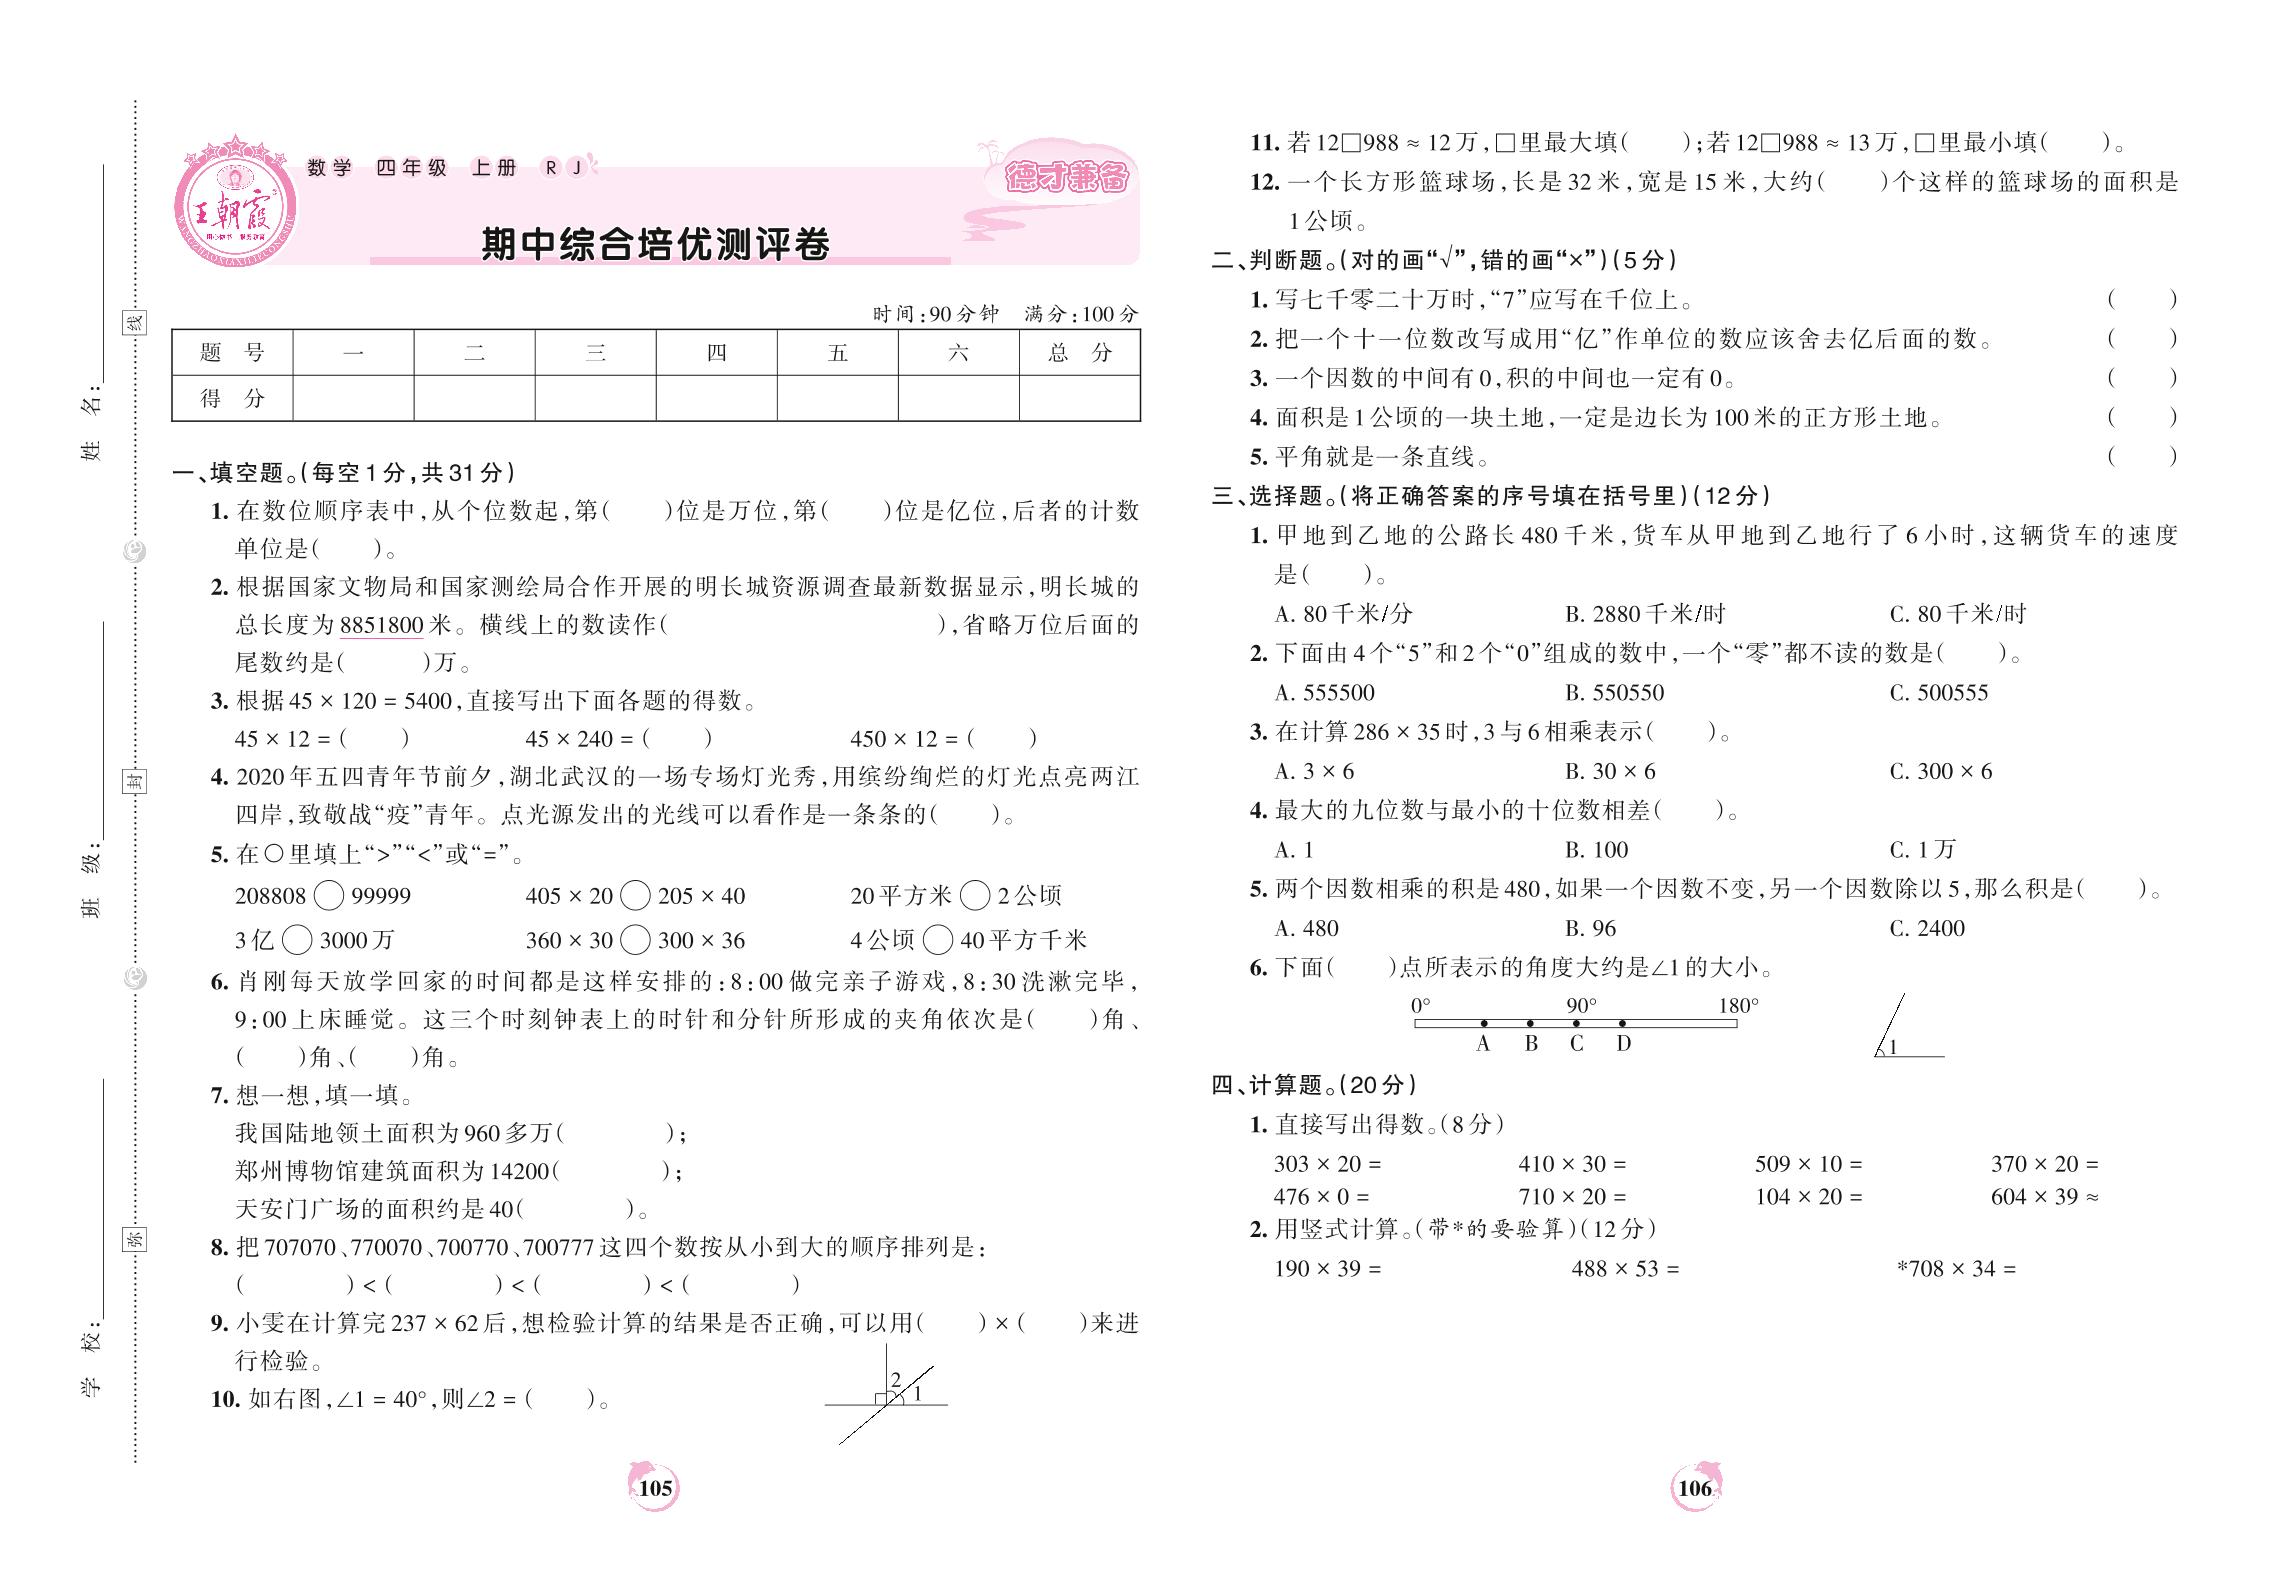 姓 名：
班 级：
学 校：
线
封
弥
王朝霞
数学 四年级 上册 RJ
德才兼备
期中综合培优测评卷
时间：90分钟 满分：100分
题 号 一 二 三 四 五 六 总 分
得 分
一、填空题。（每空1分，共31分）
1. 在数位顺序表中，从个位数起，第（ ）位是万位，第（ ）位是亿位，后者的计数
单位是（ ）。
2. 根据国家文物局和国家测绘局合作开展的明长城资源调查最新数据显示，明长城的
总长度为8851800米。横线上的数读作（ ），省略万位后面的
尾数约是（ ）万。
3. 根据45 × 120 = 5400，直接写出下面各题的得数。
45 × 12 =（ ） 45 × 240 =（ ） 450 × 12 =（ ）
4. 2020年五四青年节前夕，湖北武汉的一场专场灯光秀，用缤纷绚烂的灯光点亮两江
四岸，致敬战“疫”青年。点光源发出的光线可以看作是一条条的（ ）。
5. 在○里填上“>”“<”或“=”。
208808○99999 405 × 20○205 × 40 20平方米○2公顷
3亿○3000万 360 × 30○300 × 36 4公顷○40平方千米
6. 肖刚每天放学回家的时间都是这样安排的：8：00做完亲子游戏，8：30洗漱完毕，
9：00上床睡觉。这三个时刻钟表上的时针和分针所形成的夹角依次是（ ）角、
（ ）角、（ ）角。
7. 想一想，填一填。
我国陆地领土面积为960多万（ ）；
郑州博物馆建筑面积为14200（ ）；
天安门广场的面积约是40（ ）。
8. 把707070、770070、700770、700777这四个数按从小到大的顺序排列是：
（ ）<（ ）<（ ）<（ ）
9. 小雯在计算完237 × 62后，想检验计算的结果是否正确，可以用（ ）×（ ）来进
行检验。
10. 如右图，∠1 = 40°，则∠2 =（ ）。
2
1
105
11. 若12□988 ≈ 12万，□里最大填（ ）；若12□988 ≈ 13万，□里最小填（ ）。
12. 一个长方形篮球场，长是32米，宽是15米，大约（ ）个这样的篮球场的面积是
1公顷。
二、判断题。（对的画“√”，错的画“×”）（5分）
1. 写七千零二十万时，“7”应写在千位上。 （ ）
2. 把一个十一位数改写成用“亿”作单位的数应该舍去亿后面的数。 （ ）
3. 一个因数的中间有0，积的中间也一定有0。 （ ）
4. 面积是1公顷的一块土地，一定是边长为100米的正方形土地。 （ ）
5. 平角就是一条直线。 （ ）
三、选择题。（将正确答案的序号填在括号里）（12分）
1. 甲地到乙地的公路长480千米，货车从甲地到乙地行了6小时，这辆货车的速度
是（ ）。
A. 80千米/分 B. 2880千米/时 C. 80千米/时
2. 下面由4个“5”和2个“0”组成的数中，一个“零”都不读的数是（ ）。
A. 555500 B. 550550 C. 500555
3. 在计算286 × 35时，3与6相乘表示（ ）。
A. 3 × 6 B. 30 × 6 C. 300 × 6
4. 最大的九位数与最小的十位数相差（ ）。
A. 1 B. 100 C. 1万
5. 两个因数相乘的积是480，如果一个因数不变，另一个因数除以5，那么积是（ ）。
A. 480 B. 96 C. 2400
6. 下面（ ）点所表示的角度大约是∠1的大小。
0° 90° 180°
A B C D
1
四、计算题。（20分）
1. 直接写出得数。（8分）
303 × 20 = 410 × 30 = 509 × 10 = 370 × 20 =
476 × 0 = 710 × 20 = 104 × 20 = 604 × 39 ≈
2. 用竖式计算。（带*的要验算）（12分）
190 × 39 = 488 × 53 = *708 × 34 =
106